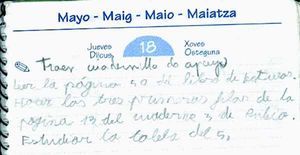 Mayo - Maig - Maio - Maiatza
Jueves 18 Xoves
Dijous Osteguna
Traer cuadernillo de apoyo
Leer la página 50 del libro de lecturas.
Hacer las tres primeras filas de la
página 13 del cuaderno 3 de
Estudiar la tabla del 5.